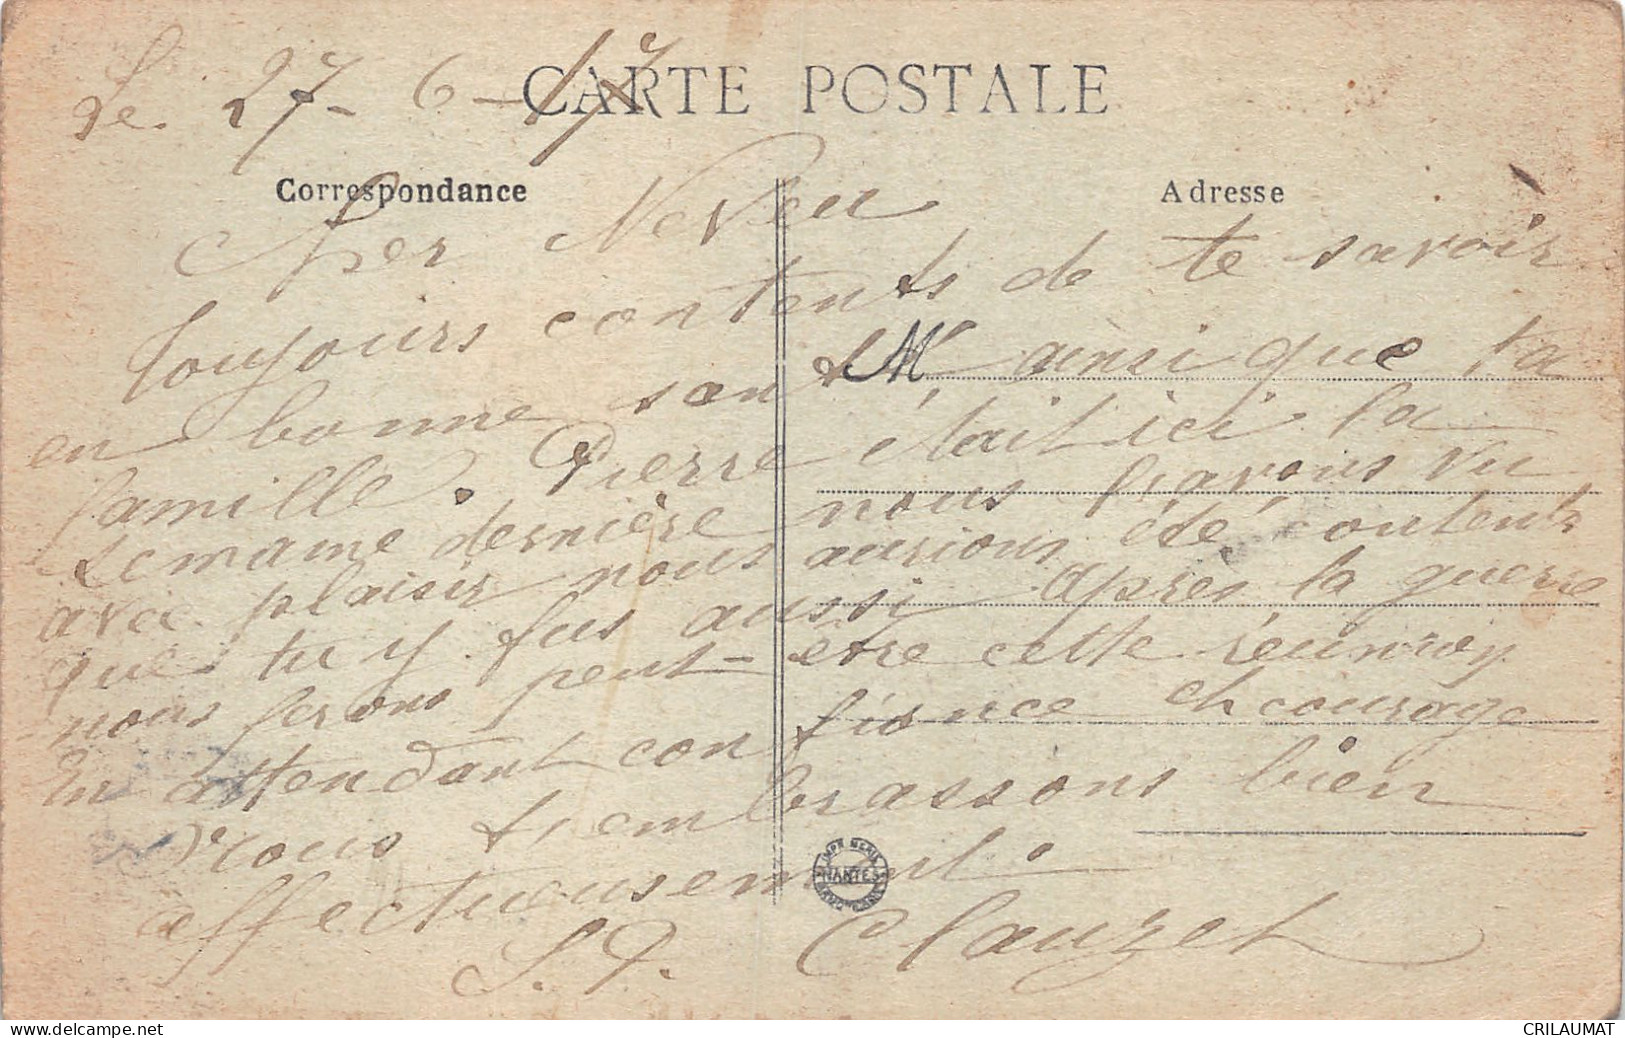 Le 27-6-17
CARTE POSTALE
Correspondance
Adresse
Cher Neveu
Toujours contents de te savoir
en bonne santé M ainsi que ta
famille. Pierre était ici la
semaine dernière nous l'avons vu
avec plaisir nous aurions été contents
que tu y fus aussi après la guerre
nous ferons peut-être cette réunion
En attendant confiance et courage
nous t'embrassons bien
affectueusement.
Clauzel
IMPRIMERIE
NANTES
CRILAUMAT